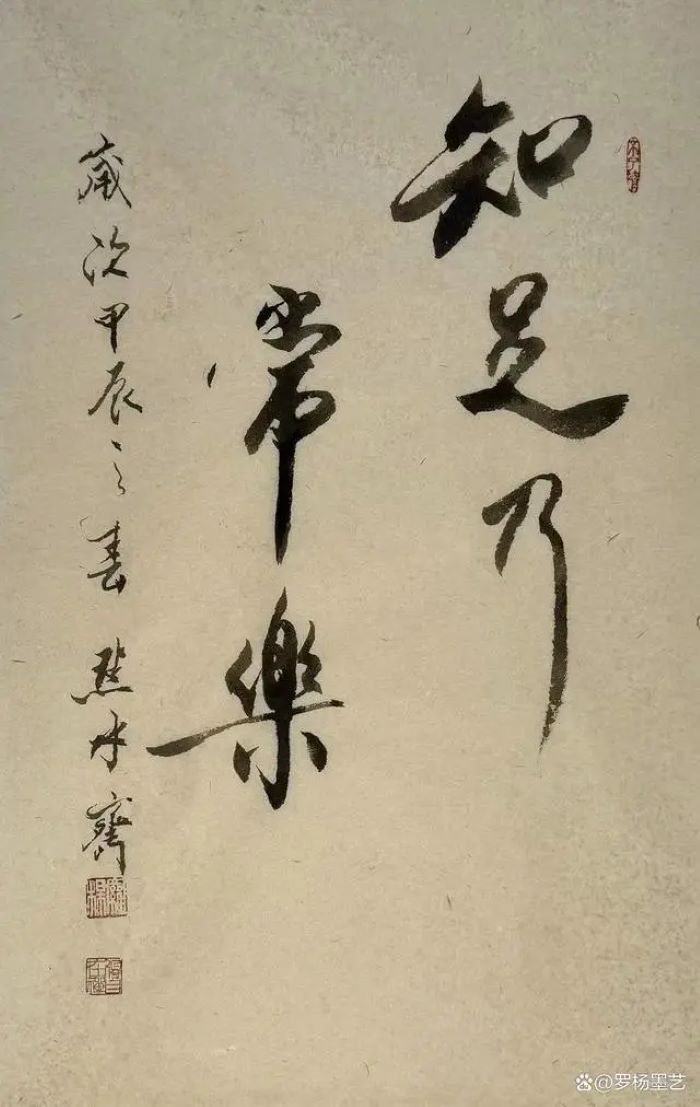 知足乃
常樂
歲次甲辰之春點水齋
罗杨墨艺